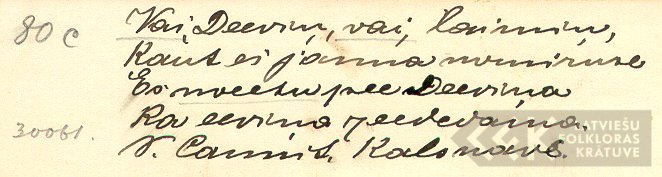 80 c
Vai, Deeviņ, vai, laimiņ,
Kaut es jauna nomiruse
Es noeetu pee Deeviņa
Ka eeviņa zeededama.
30061.
Kalsnavē.
LATVIEŠU
FOLKLORAS
KRĀTUVE